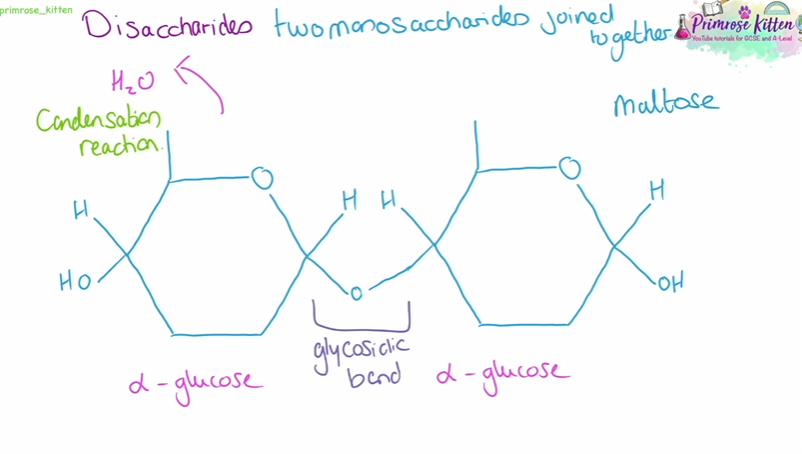 primrose_kitten
Disaccharides two monosaccharides joined
together
Primrose Kitten
YouTube tutorials for GCSE and A-Level
H₂O
Maltose
Condensation
reaction.
O
O
H
H
H
H
HO
O
OH
glycosidic
bond
α - glucose
α - glucose